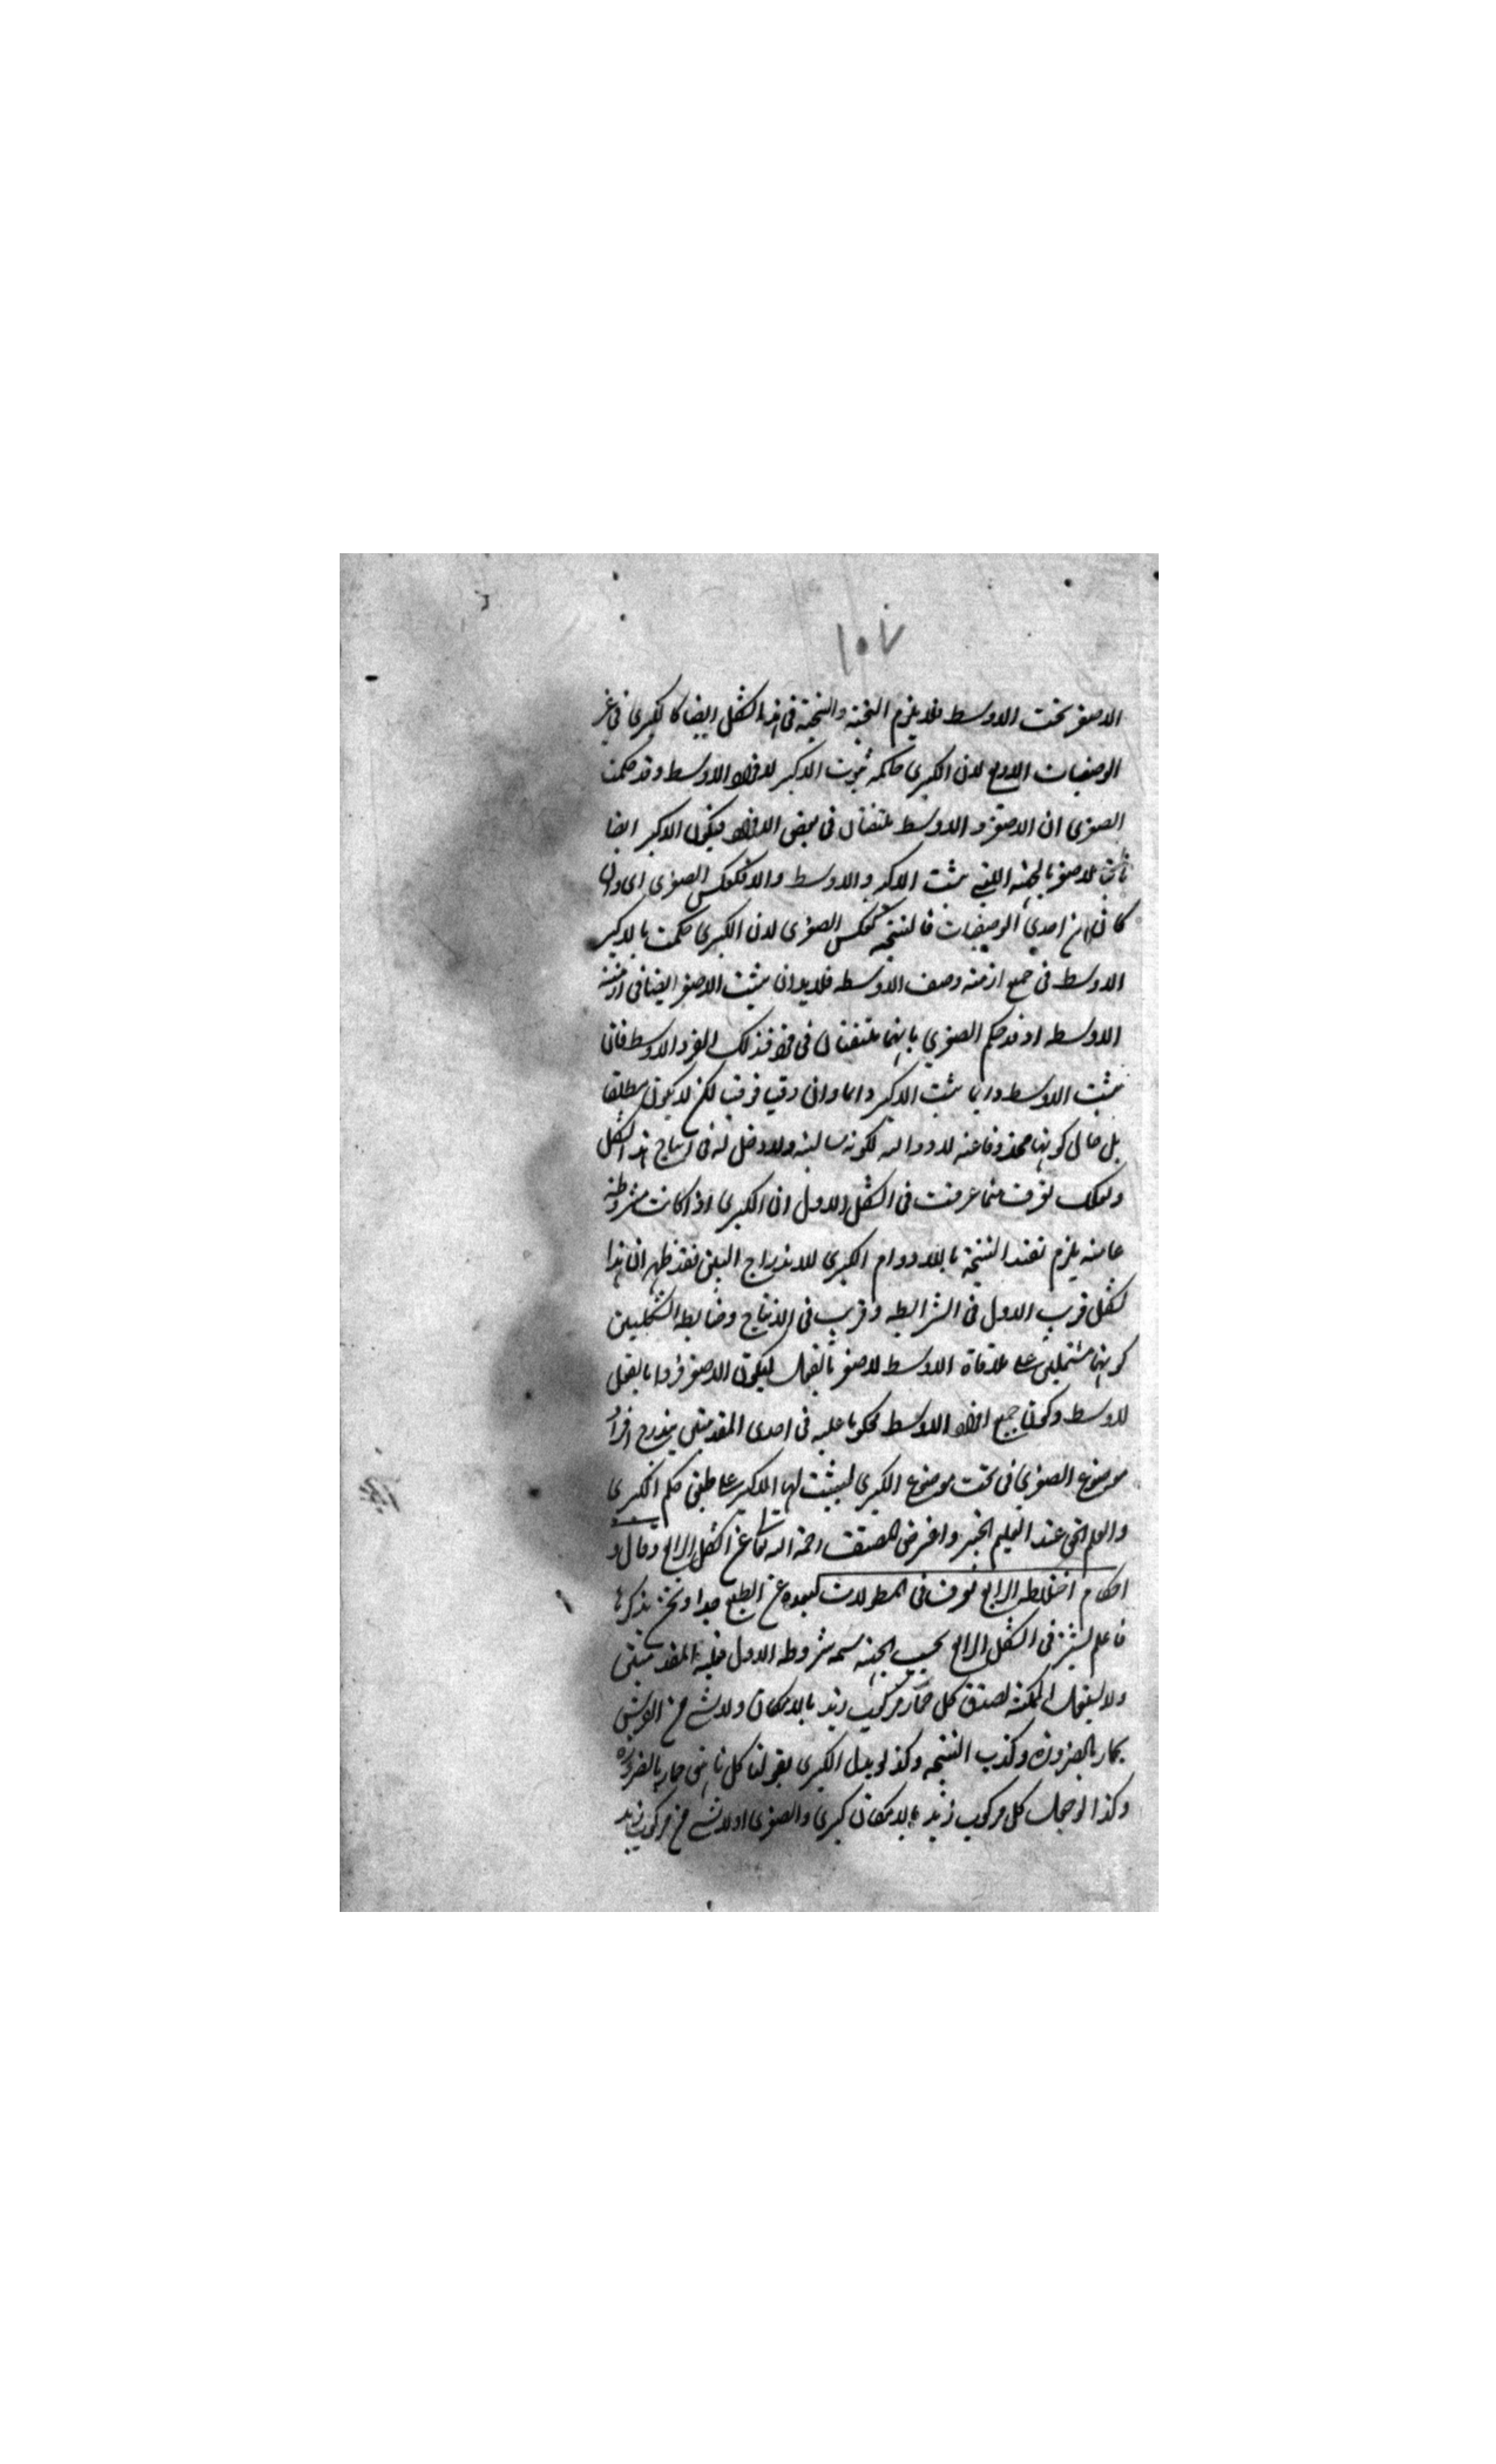 ١٠٧
الاصغر تحت الاوسط فلا يلزم النتيجة والنتيجة فى هذا الشكل ايضا كالكبرى فى غير
الوصفيات الاربع لان الكبرى حاكمة ثبوت الاكبر لافراد الاوسط وقد حكمت
الصغرى ان الاصغر والاوسط ملتقيان فى بعض الافراد فيكون الاكبر ايضا
ثابتا للاصغر بالجهة التى يثبت الاكبر والاوسط والا فكعكس الصغرى اى وان
كانت من احدى الوصفيات فالنتيجة كعكس الصغرى لان الكبرى حكمت بالاكبر
الاوسط فى جميع ازمنة وصف الاوسط فلا بد ان يثبت الاصغر ايضا فى ازمنة
الاوسط اذ قد حكم الصغرى بانهما ملتقيان فى فرد فذلك الفرد الاوسط فان
يثبت الاوسط دايما يثبت الاكبر دايما وان وقتيا فوقتيا لكن لا يكون مطلقا
بل حال كونها محذوفا عنه لا دوامه لكونه سالبة ولا دخل له فى انتاج هذا الشكل
ولعلك تعرف مما عرفت فى الشكل الاول ان الكبرى اذا كانت مشروطة
عامة يلزم تقيد النتيجة بلا دوام الكبرى للاندراج البين فقد ظهر ان هذا
لشكل قرب الاول فى الشرائط وقريب فى الانتاج وضابطة الشكلين
كونهما مشتملين على ملاقاة الاوسط لاصغر بالفعل ليكون الاصغر فردا بالفعل
للاوسط وكون جميع افراد الاوسط محكوما عليه فى احدى المقدمتين يندرج افراد
موضوع الصغرى فى تحت موضوع الكبرى ليثبت لها الاكبر على طبق حكم الكبرى
والعلم الحق عند العليم الخبير واعرض المصنف رحمه الله تعالى عن الشكل الرابع وقال و
احكام اختلاط الرابع تعرف فى المطولات لبعده عن الطبع جدا ونحن نذكرها
فاعلم يشترط فى الشكل الرابع بحسب الجهة خمسة شروط الاول فعلية المقدمتين
ولا يستعمل الممكنة لصدق كل حمار مركوب زيد بالامكان ولا شئ من الفرس
بحمار بالضرورة وكذب النتيجة وكذا لو بدل الكبرى بقولنا كل ناهق حمار بالضرورة
وكذا لو جعل كل مركوب زيد بالامكان كبرى والصغرى اولا شئ من مركوب زيد